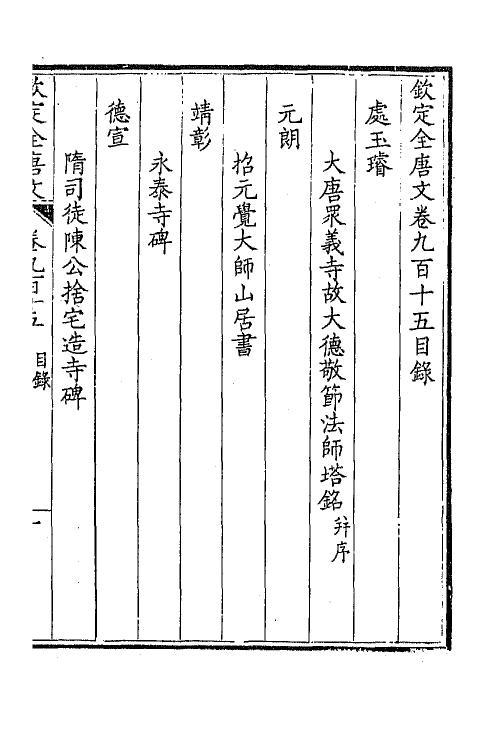 欽定全唐文卷九百十五目錄
處玉璿
大唐眾義寺故大德敬節法師塔銘 并序
元朗
招元覺大師山居書
靖彰
永泰寺碑
德宣
隋司徒陳公捨宅造寺碑
欽定全唐文 卷九百十五 目錄 一